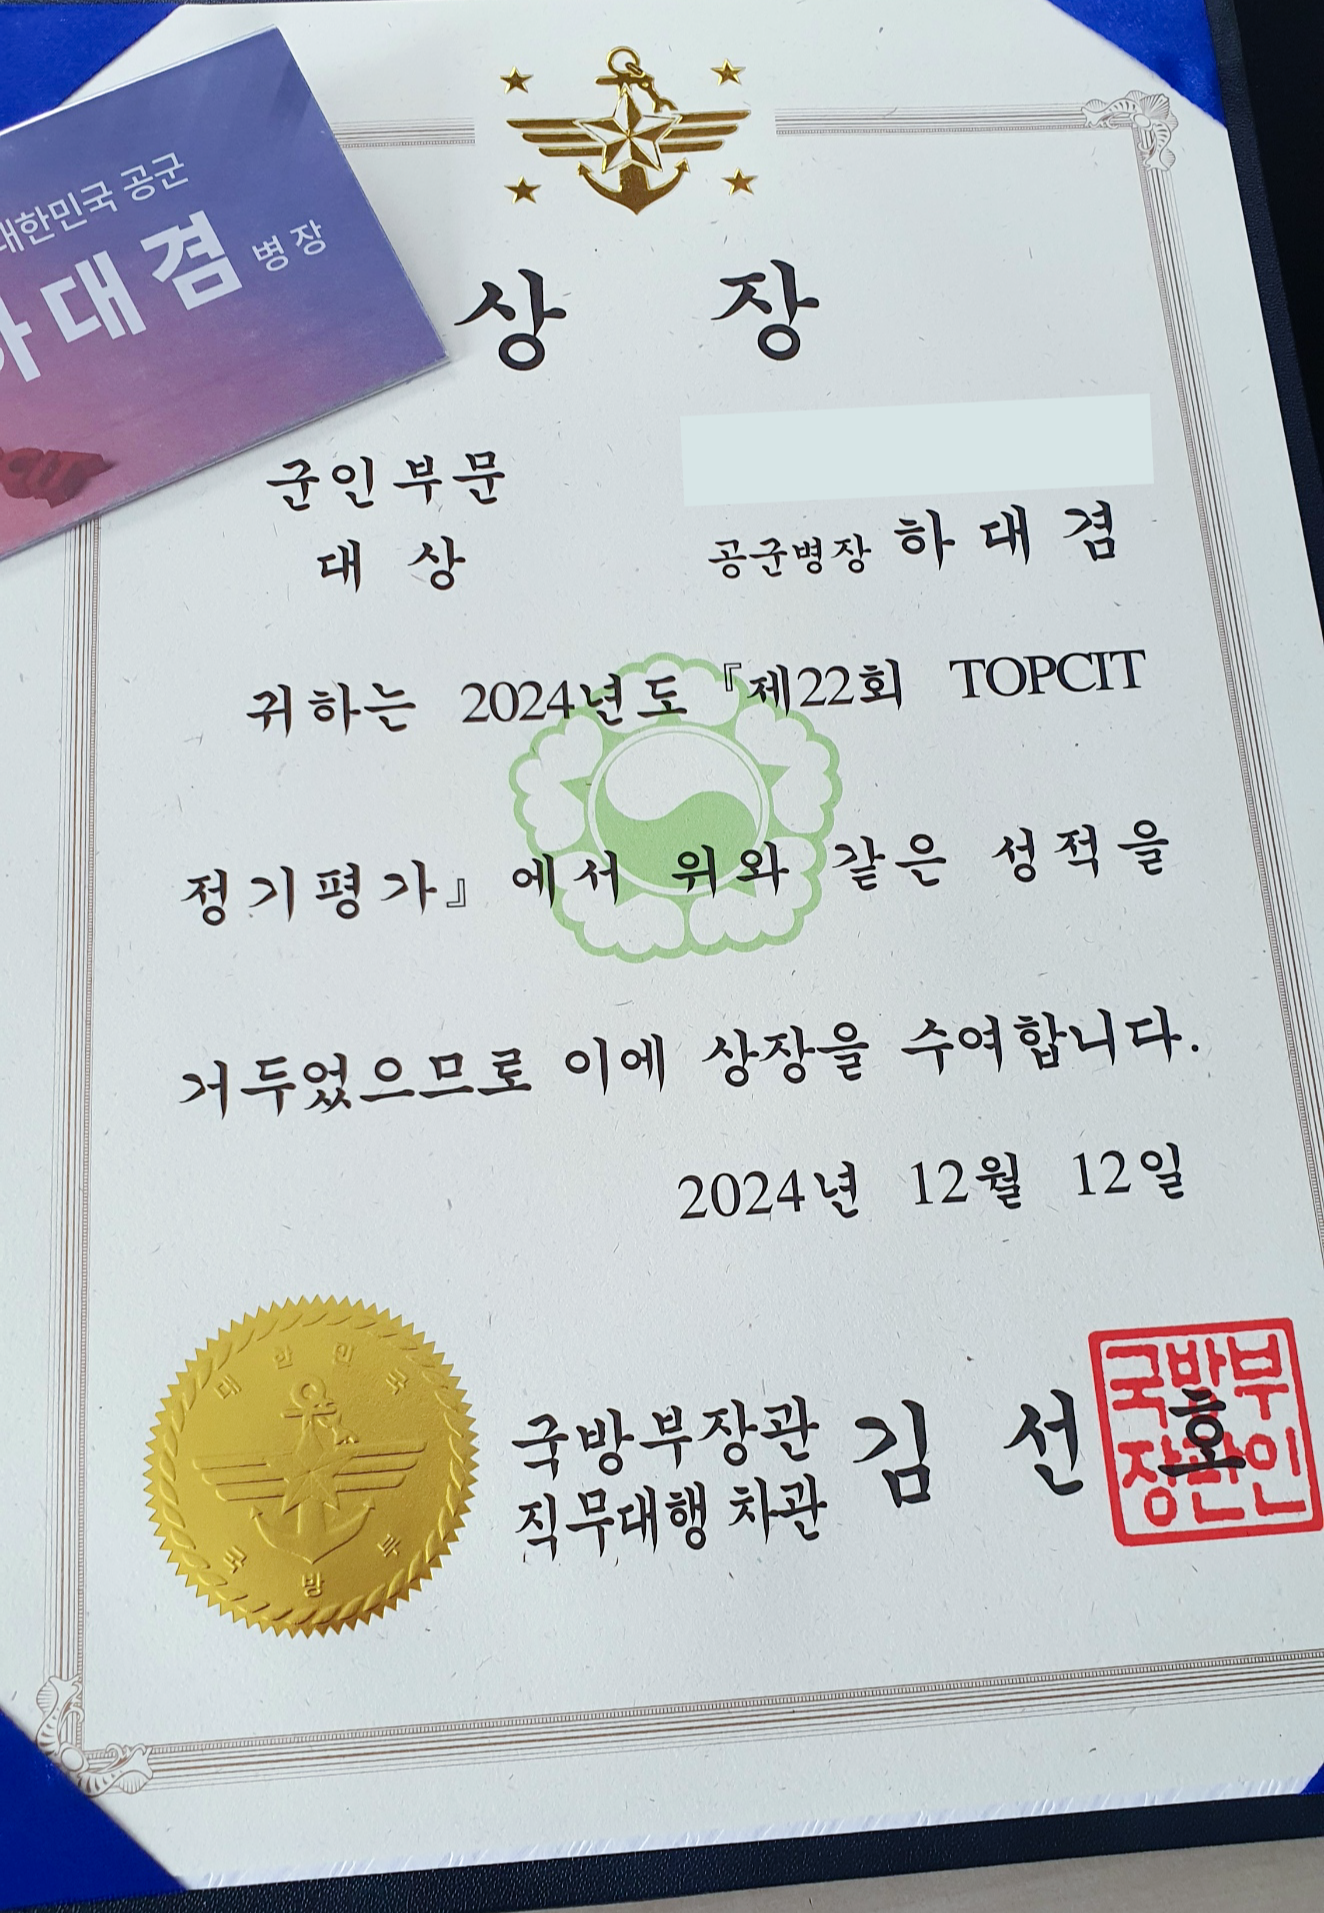 대한민국 공군
하대겸 병장
상 장
군인부문
대 상
공군병장 하 대 겸
귀하는 2024년도 『제22회 TOPCIT
정기평가』에서 위와 같은 성적을
거두었으므로 이에 상장을 수여합니다.
2024년 12월 12일
국방부장관
직무대행 차관
김 선 호
국방부
장관인
대한민국
국방부